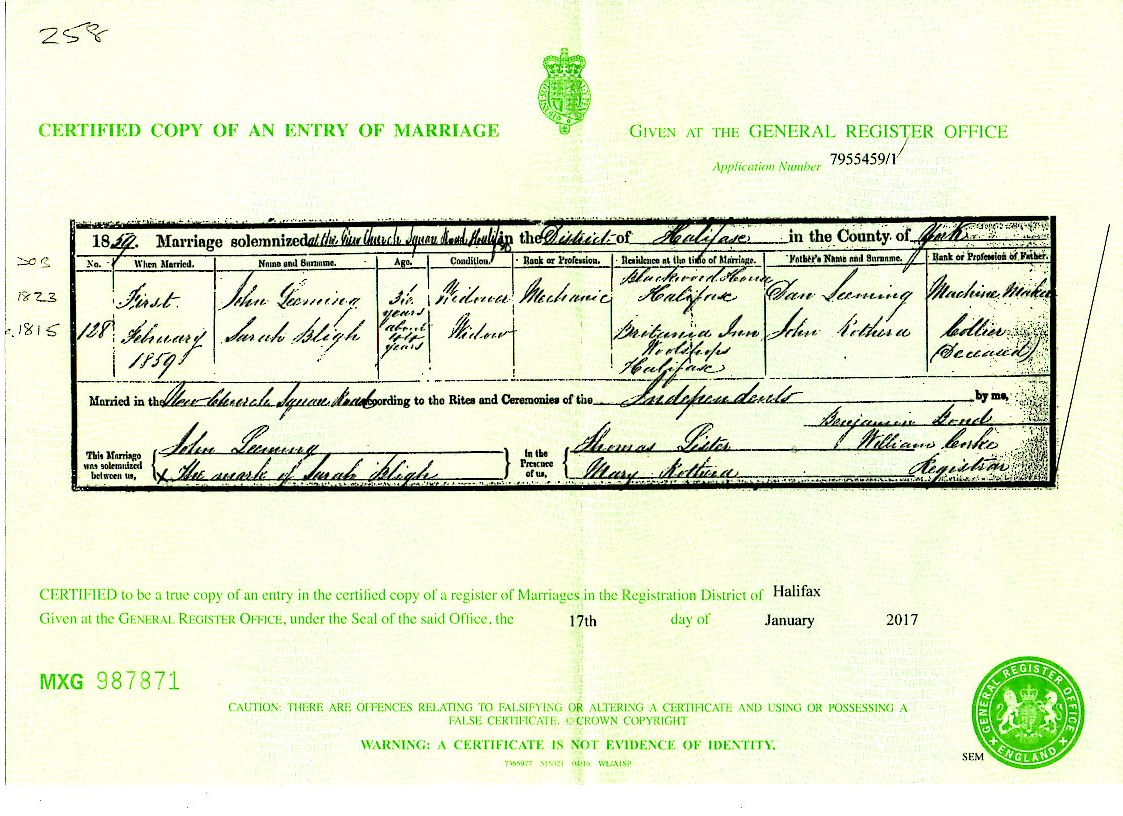 258
CERTIFIED COPY OF AN ENTRY OF MARRIAGE
GIVEN AT THE GENERAL REGISTER OFFICE
Application Number 7955459/1
1859. Marriage solemnized at the New Church Square Road Halifax in the District of Halifax in the County of York
No. When Married. Name and Surname. Age. Condition. Rank or Profession. Residence at the time of Marriage. Father's Name and Surname. Rank or Profession of Father.
DOB
1823
1815
128
First
February
1859
John Leeming
Sarah Bligh
years
about
years
Widower
Widow
Mechanic
Blackwood House
Halifax
Britania Inn
Woolshops
Halifax
Dan Leeming
John Rothera
Machine Maker
Collier
(Deceased)
Married in the New Church Square Road according to the Rites and Ceremonies of the Independents by me,
Benjamin
William
Registrar
This Marriage was solemnized between us,
John Leeming
X The mark of Sarah Bligh
In the Presence of us,
Thomas Lister
Mary Rothera
CERTIFIED to be a true copy of an entry in the certified copy of a register of Marriages in the Registration District of Halifax
Given at the GENERAL REGISTER OFFICE, under the Seal of the said Office, the 17th day of January 2017
MXG 987871
CAUTION: THERE ARE OFFENCES RELATING TO FALSIFYING OR ALTERING A CERTIFICATE AND USING OR POSSESSING A
FALSE CERTIFICATE. © CROWN COPYRIGHT
WARNING: A CERTIFICATE IS NOT EVIDENCE OF IDENTITY.
04/16
GENERAL REGISTER OFFICE
ENGLAND
SEM